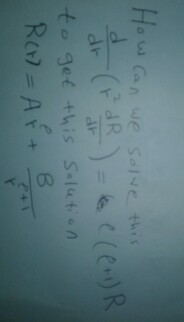 How can we solve this
d/dr (r² dR/dr) = ℓ(ℓ+1)R
to get this solution
R(r) = A r^ℓ + B/r^(ℓ+1)